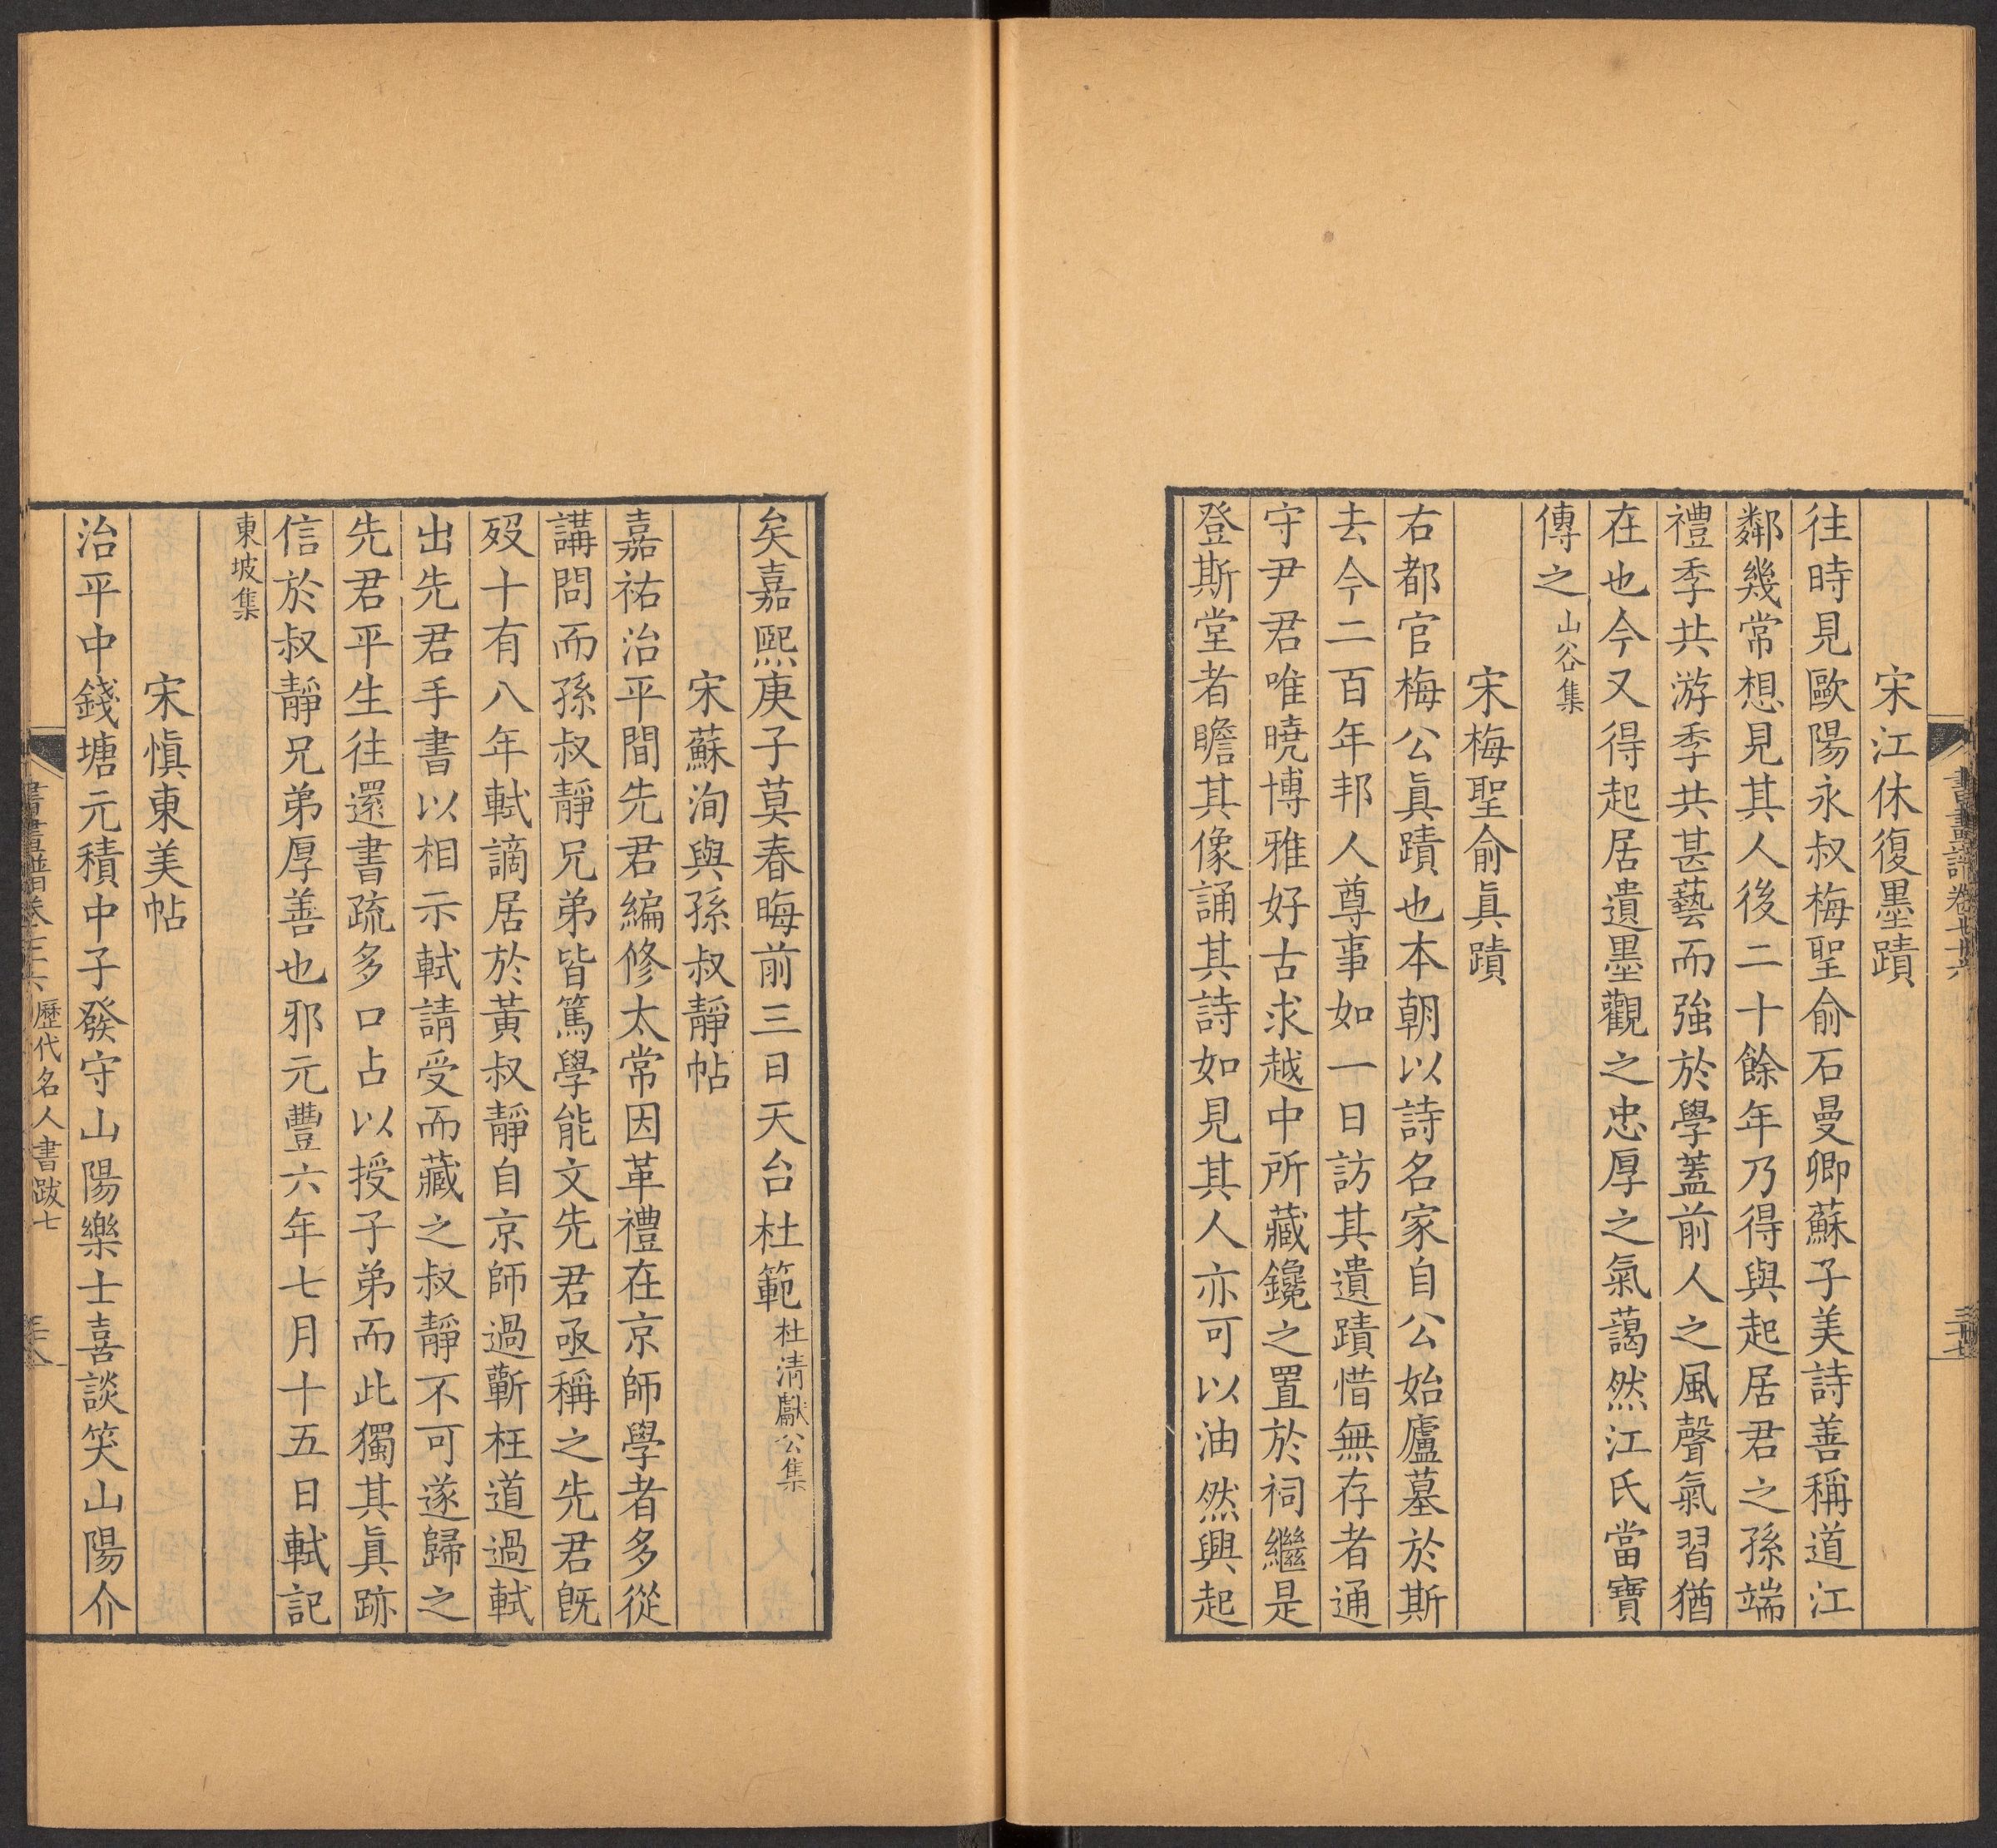 宋江休復墨蹟
往時見歐陽永叔梅聖俞石曼卿蘇子美詩善稱道江
鄰幾常想見其人後二十餘年乃得與起居君之孫端
禮季共游季共甚藝而強於學蓋前人之風聲氣習猶
在也今又得起居遺墨觀之忠厚之氣藹然江氏當寶
傳之山谷集
宋梅聖俞眞蹟
右都官梅公眞蹟也本朝以詩名家自公始廬墓於斯
去今二百年邦人尊事如一日訪其遺蹟惜無存者通
守尹君唯曉博雅好古求越中所藏鑱之置於祠繼是
登斯堂者瞻其像誦其詩如見其人亦可以油然興起
矣嘉熙庚子莫春晦前三日天台杜範杜清獻公集
宋蘇洵與孫叔靜帖
嘉祐治平間先君編修太常因革禮在京師學者多從
講問而孫叔靜兄弟皆篤學能文先君亟稱之先君旣
歿十有八年軾謫居於黃叔靜自京師過蘄枉道過軾
出先君手書以相示軾請受而藏之叔靜不可遂歸之
先君平生往還書疏多口占以授子弟而此獨其眞跡
信於叔靜兄弟厚善也邪元豐六年七月十五日軾記
東坡集
宋愼東美帖
治平中錢塘元積中子發守山陽樂士喜談笑山陽介
歷代名人書跋七